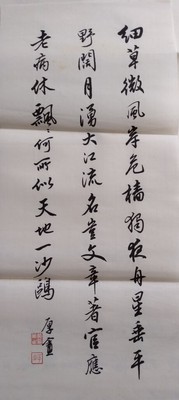 细草微风岸危樯独夜舟星垂平
野阔月涌大江流名岂文章著官应
老病休飘飘何所似天地一沙鸥
厚宣